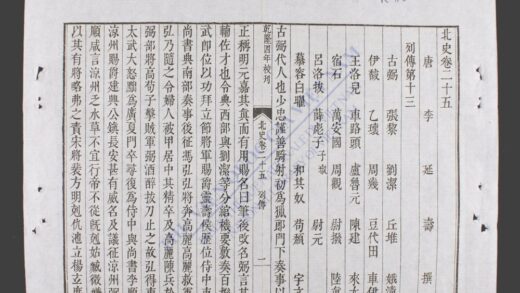 北史卷二十五
唐 李 延 壽 撰
列傳第十三
古弼 張黎 劉潔 丘堆 娥清
伊馛 乙瓌 周幾 豆代田 車伊
王洛兒 車路頭 盧魯元 陳建 來大
宿石 萬安國 周觀 尉撥 陸
呂洛拔 薛彪子 子琡 尉元
慕容白曜 和其奴 苟頹 宇文
古弼代人也少忠謹善騎射初為獵郎門下奏事以
乾隆四年校刊
北史卷二十五 列傳 一
正稱明元嘉其直而有用賜名曰筆後改名弼言其
輔佐才也令典西部與劉潔等分綰機要敷奏百揆
武即位以功拜立節將軍賜爵靈壽侯歷位侍中吏
尚書典南部奏事後征馮弘弘將奔高麗高麗救軍
弘乃隨之令婦人被甲居中其精卒及高麗陳兵於
弼部將高苟子擊賊軍弼酒醉拔刀止之故弘得東
太武大怒黜為廣夏門卒尋復為侍中與尚書李順
涼州賜爵建興公鎮長安甚有威名及議征涼州弼
順咸言涼州乏水草不宜行帝不從既剋姑臧微嫌
以其有將略弗之責宋將裴方明剋仇池立楊玄庶